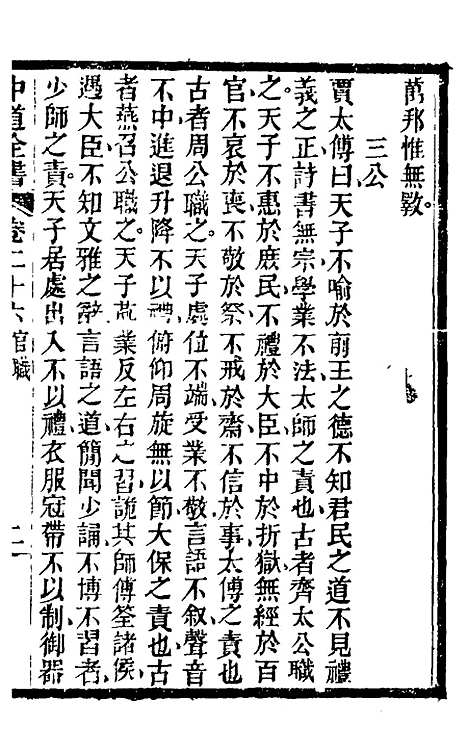 萬邦惟無斁
三公
賈太傅曰天子不喻於前王之德不知君民之道不見禮
義之正詩書無宗學業不法太師之責也古者齊太公職
之天子不惠於庶民不禮於大臣不中於折獄無經於百
官不哀於喪不敬於祭不戒於齋不信於事太傅之責也
古者周公職之天子處位不端受業不敬言語不叙聲音
不中進退升降不以禮俯仰周旋無以節大保之責也古
者燕召公職之天子燕業反左右之習詭其師傅答諸侯
遇大臣不知文雅之辭言語之道簡聞少誦不博不習者
少師之責天子居處出入不以禮衣服冠帶不以制御器
中道全書 卷二十六 官職 二